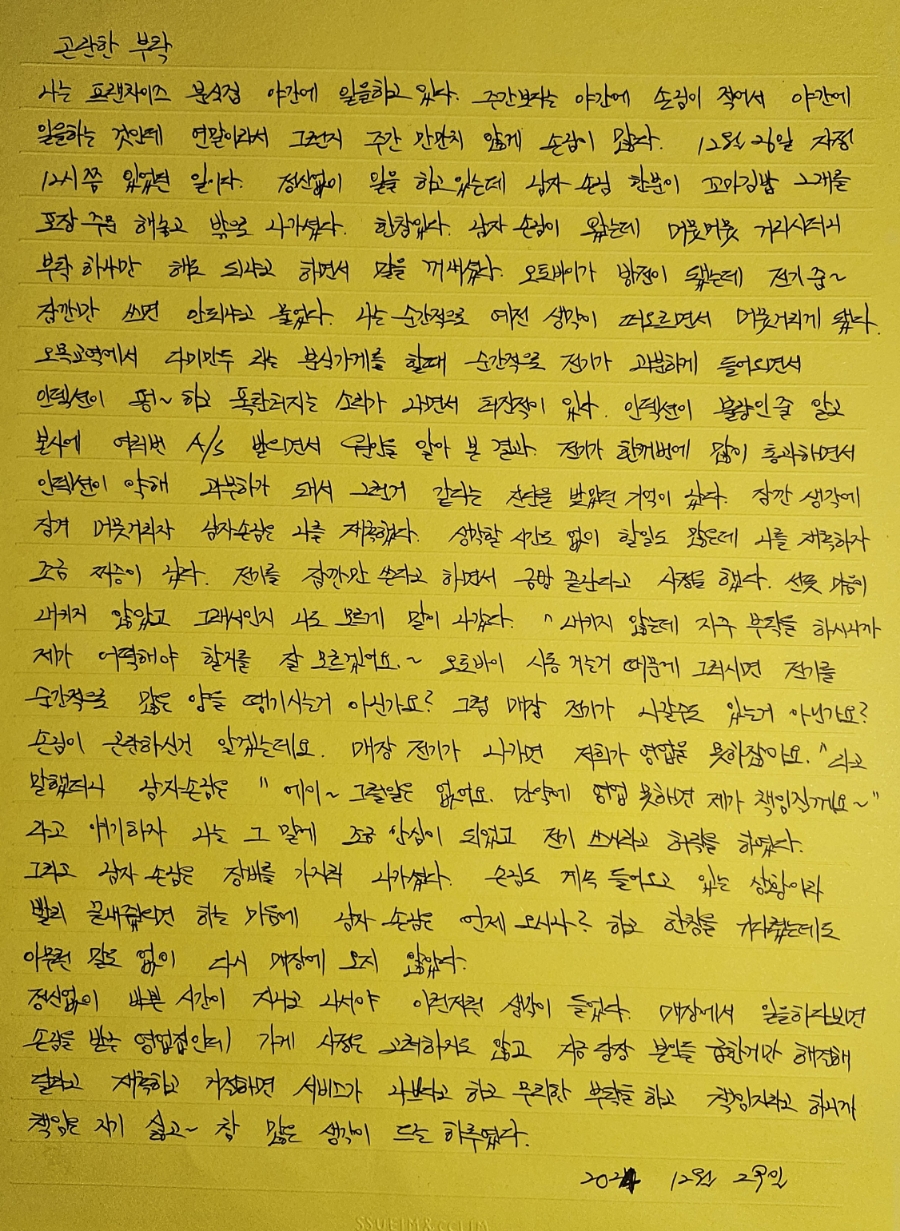 곤란한 부탁
나는 프랜차이즈 분식점 야간에 일을하고 있다. 주간보다는 야간에 손님이 적어서 야간에
일을하는 것인데 연말이라서 그런지 주간 만만치 않게 손님이 많다. 12월 26일 자정
12시쯤 있었던 일이다. 정신없이 일을 하고있는데 남자 손님 한분이 꼬마김밥 2개를
포장 주문 해놓고 밖으로 나가셨다. 한참있다. 남자 손님이 왔는데 머뭇머뭇 거리시더니
부탁 하나만 해도 되냐고 하면서 말을 꺼내셨다. 오토바이가 방전이 됐는데 전기 좀~
잠깐만 쓰면 안되냐고 물었다. 나는 순간적으로 예전 생각이 떠오르면서 머뭇거리게 됐다.
오목교역에서 다미만두 라는 분식가게를 할때 순간적으로 전기가 과분하게 들어오면서
인덱션이 펑~ 하고 폭탄터지는 소리가 나면서 터진적이 있다. 인덱션이 불량인줄 알고
본사에 여러번 A/S 받으면서 원인을 알아 본 결과. 전기가 한꺼번에 많이 통과하면서
인덱션이 약해 과부하가 돼서 그런거 같다는 진단을 받았던 기억이 났다. 잠깐 생각에
잠겨 머뭇거리자 남자손님은 나를 재촉했다. 생각할 시간도 없이 할일도 많은데 나를 재촉하자
조금 짜증이 났다. 전기를 잠깐만 쓴다고 하면서 금방 끝난다고 사정을 했다. 선뜻 마음이
내키지 않았고 그래서인지 나도 모르게 말이 나갔다. "내키지 않는데 자꾸 부탁을 하시니까
제가 어떡해야 할거를 잘 모르겠어요.~ 오토바이 시동 거는거 때문에 그러시면 전기를
순간적으로 많은 양을 땡기시는거 아닌가요? 그럼 매장 전기가 나갈수도 있는거 아닌가요?
손님이 곤란하신건 알겠는데요. 매장 전기가 나가면 저희가 영업을 못하잖아요." 라고
말했더니 남자손님은 " 에이~ 그럴일은 없어요. 만약에 영업 못하면 제가 책임질께요~"
라고 얘기하자 나는 그 말에 조금 안심이 되었고 전기 쓰시라고 허락을 하였다.
그리고 남자 손님은 장비를 가지러 나가셨다. 손님도 계속 들어오고 있는 상황이라
빨리 끝내줬으면 하는 마음에 남자 손님은 언제 오시나? 하고 한참을 기다렸는데도
아무런 말도 없이 다시 매장에 오지 않았다.
정신없이 바쁜 시간이 지나고 나서야 이런저런 생각이 들었다. 매장에서 일을하다보면
손님을 받는 영업집인데 가게 사정은 고려하지도 않고 지금 당장 본인들 급한거만 해결해
달라고 재촉하고 거절하면 서비스가 나쁘다고 하고 무리한 부탁을 하고 책임지라고 하니까
책임은 지기 싫고~ 참 많은 생각이 드는 하루였다.
2024 12월 27일